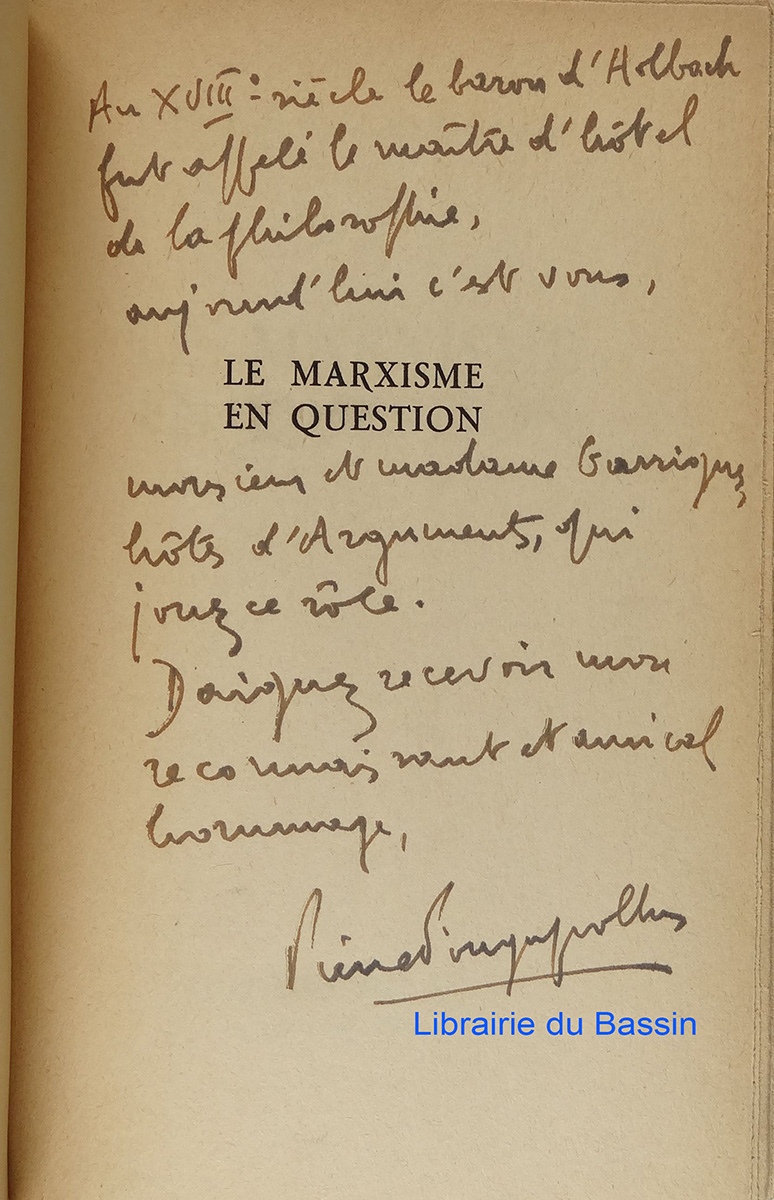 Au XVIIIe siècle le baron d'Holbach
fut appelé le maître d'hôtel
de la philosophie,
aujourd'hui c'est vous,
LE MARXISME
EN QUESTION
monsieur et madame Garrigues,
hôtes d'Arguments, qui
jouez ce rôle.
Daignez recevoir mon
reconnaissant et amical
hommage,
Pierre Fougeyrollas
Librairie du Bassin